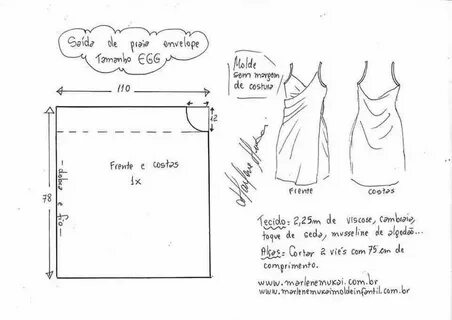 Saída de praia envelope
Tamanho EGG
110
12
78
dobra e fio
Frente e costas
1x
Molde
sem margem
de costura
Frente
costas
Tecido= 2,25m de viscose, cambraia,
toque de seda, musseline de algodão...
Alças= Cortar 2 viés com 75 cm de
comprimento.
www.marlenemukai.com.br
www.marlenemukaimoldeinfantil.com.br